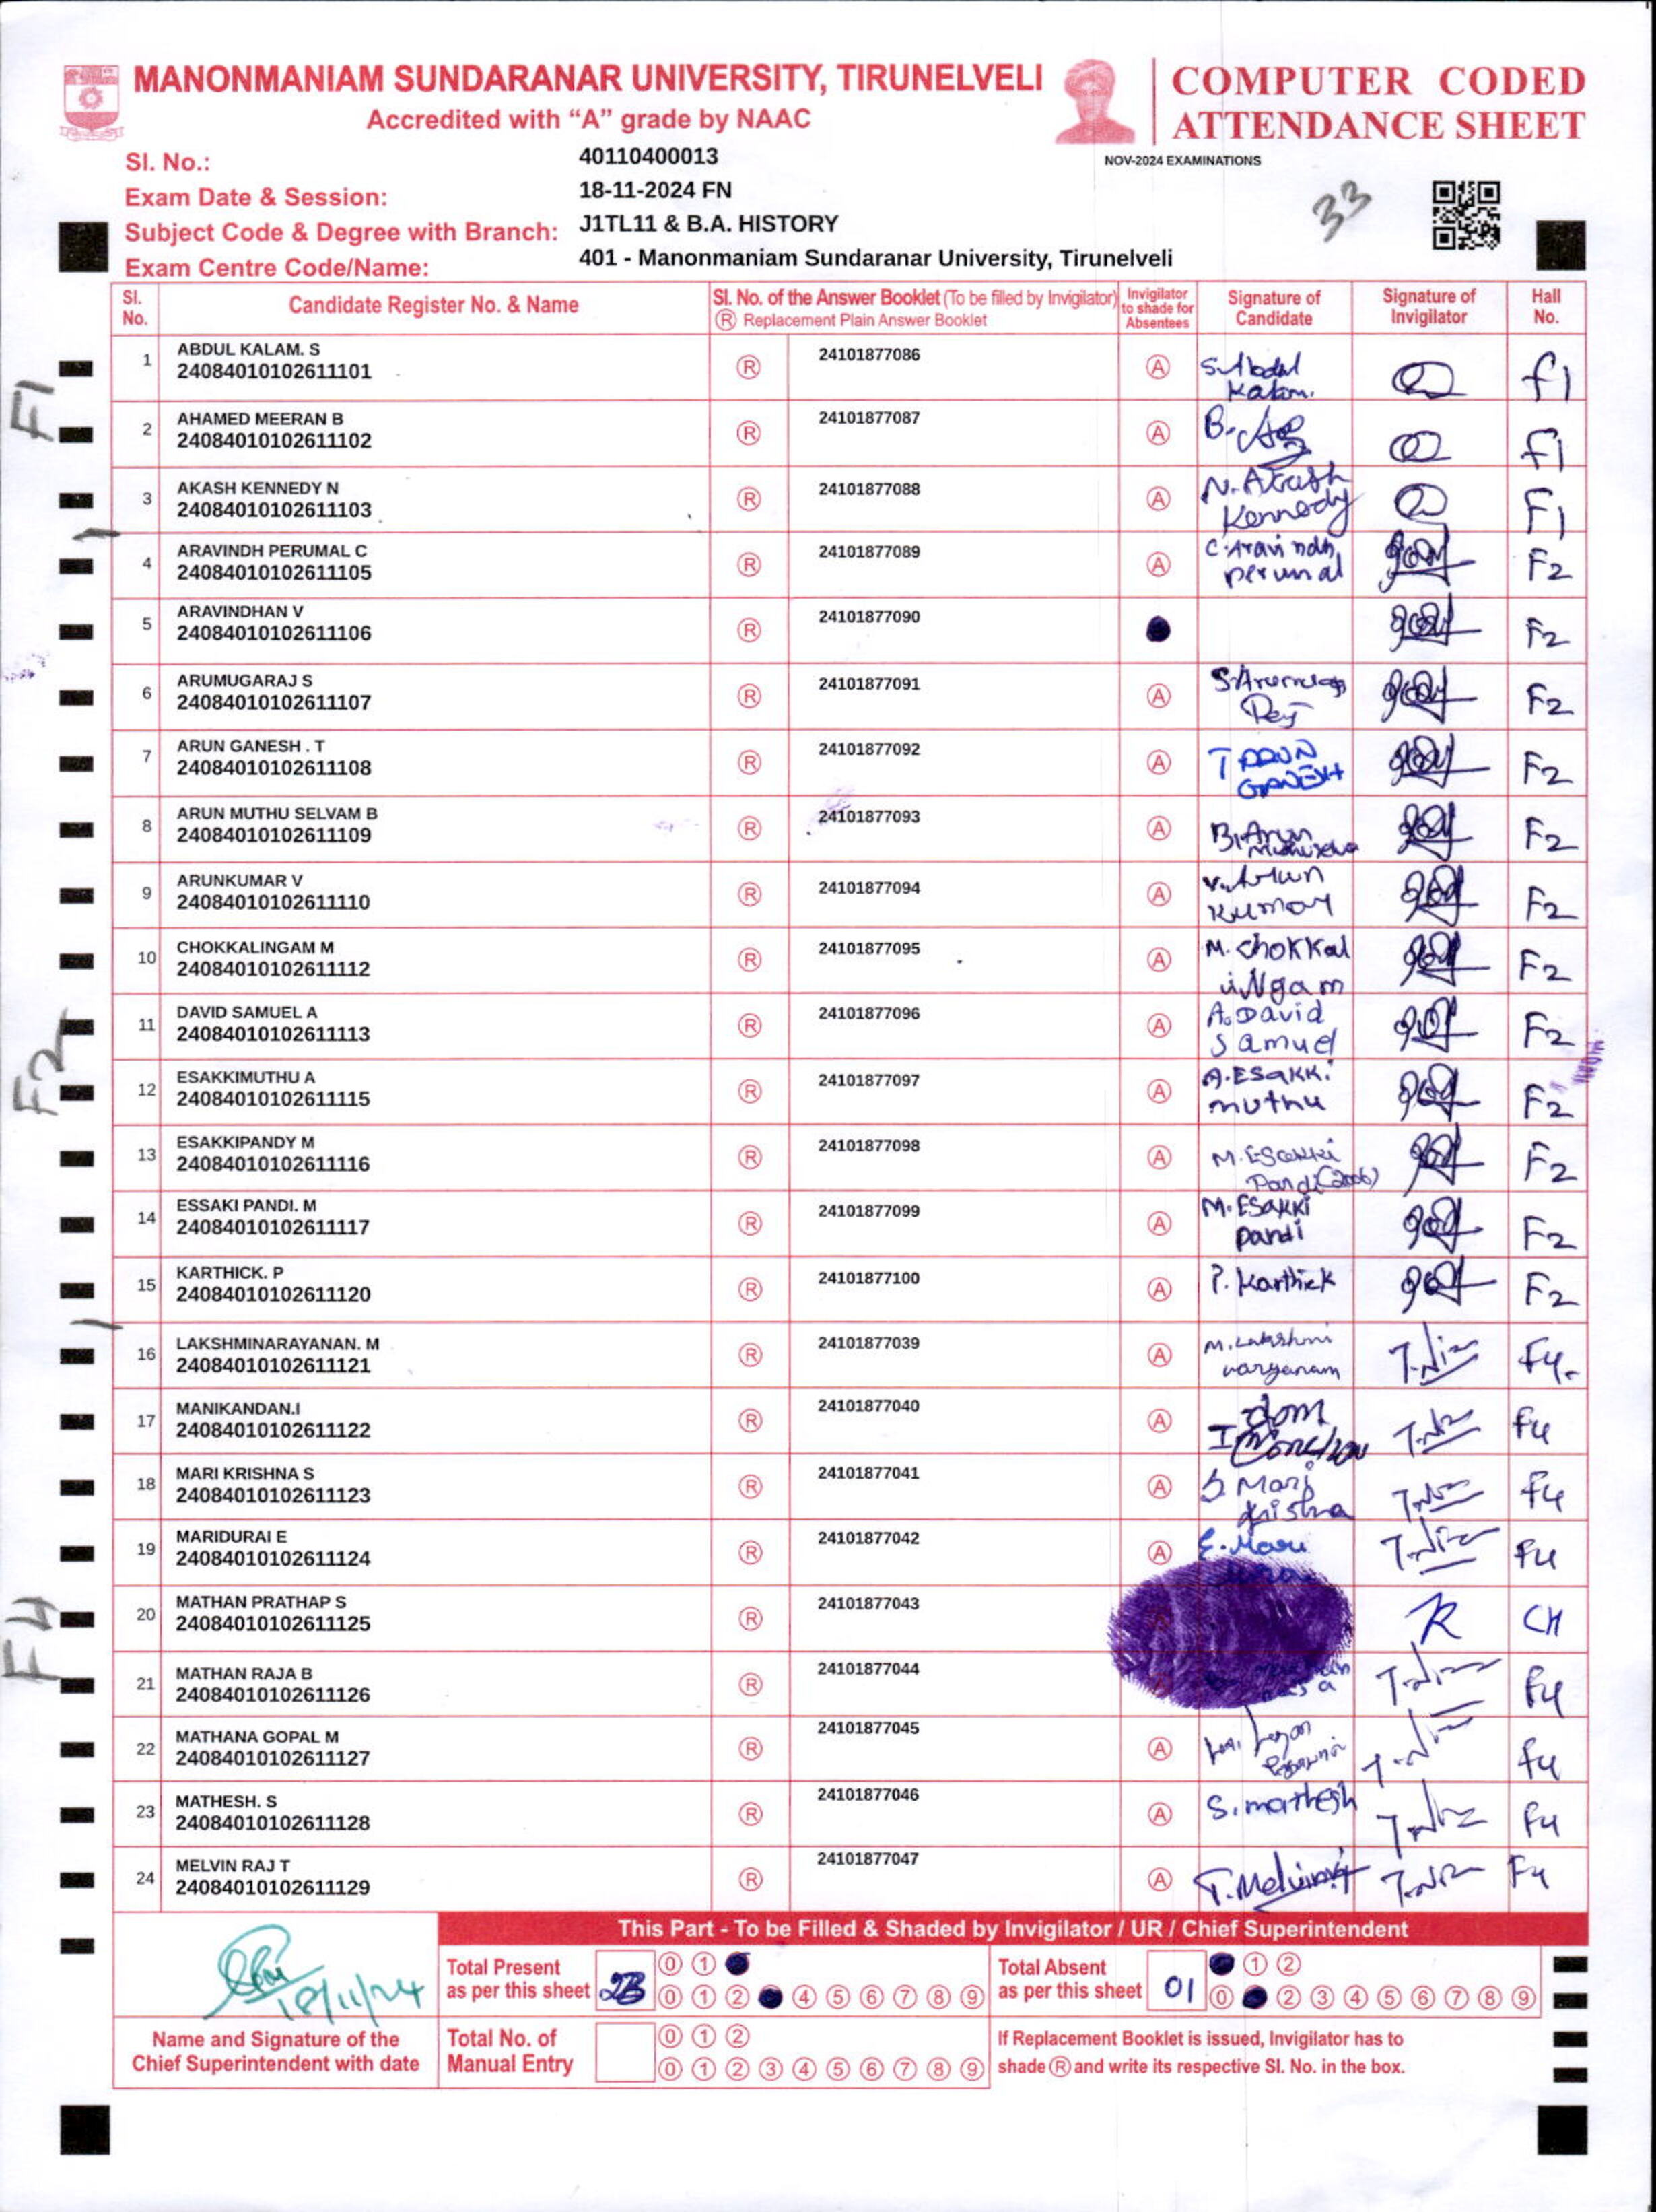 MANONMANIAM SUNDARANAR UNIVERSITY, TIRUNELVELI
Accredited with “A” grade by NAAC
COMPUTER CODED
ATTENDANCE SHEET
NOV-2024 EXAMINATIONS
Sl. No.: 40110400013
Exam Date & Session: 18-11-2024 FN
Subject Code & Degree with Branch: J1TL11 & B.A. HISTORY
Exam Centre Code/Name: 401 - Manonmaniam Sundaranar University, Tirunelveli
33
Sl. No. Candidate Register No. & Name Sl. No. of the Answer Booklet (To be filled by Invigilator) Ⓡ Replacement Plain Answer Booklet Invigilator to shade for Absentees Signature of Candidate Signature of Invigilator Hall No.
F1
1 ABDUL KALAM. S 24101877086 S.Abdul
24084010102611101 Ⓡ Ⓐ Kalam. f1
2 AHAMED MEERAN B 24101877087
24084010102611102 Ⓡ Ⓐ f1
3 AKASH KENNEDY N 24101877088 N. Akash
24084010102611103 Ⓡ Ⓐ Kennedy F1
4 ARAVINDH PERUMAL C 24101877089 C.Aravindh
24084010102611105 Ⓡ Ⓐ perumal F2
5 ARAVINDHAN V 24101877090
24084010102611106 Ⓡ F2
6 ARUMUGARAJ S 24101877091
24084010102611107 Ⓡ Ⓐ F2
7 ARUN GANESH . T 24101877092 T ARUN
24084010102611108 Ⓡ Ⓐ GANESH F2
8 ARUN MUTHU SELVAM B 24101877093 B.Arun
24084010102611109 Ⓡ Ⓐ F2
9 ARUNKUMAR V 24101877094 V.Arun
24084010102611110 Ⓡ Ⓐ Kumar F2
10 CHOKKALINGAM M 24101877095 M. Chokkal
24084010102611112 Ⓡ Ⓐ iNgam F2
F2
11 DAVID SAMUEL A 24101877096 A.David
24084010102611113 Ⓡ Ⓐ Samuel F2
12 ESAKKIMUTHU A 24101877097 A.ESakki
24084010102611115 Ⓡ Ⓐ muthu F2
13 ESAKKIPANDY M 24101877098 M.Esakki
24084010102611116 Ⓡ Ⓐ Pandi(2006) F2
14 ESSAKI PANDI. M 24101877099 M.ESakki
24084010102611117 Ⓡ Ⓐ Pandi F2
15 KARTHICK. P 24101877100 P. Karthick
24084010102611120 Ⓡ Ⓐ F2
16 LAKSHMINARAYANAN. M 24101877039 M.Lakshmi
24084010102611121 Ⓡ Ⓐ F4.
17 MANIKANDAN.I 24101877040
24084010102611122 Ⓡ Ⓐ F4
18 MARI KRISHNA S 24101877041 S. Mari
24084010102611123 Ⓡ Ⓐ krishna F4
19 MARIDURAI E 24101877042 E.Mari
24084010102611124 Ⓡ Ⓐ F4
F4
20 MATHAN PRATHAP S 24101877043
24084010102611125 Ⓡ CH
21 MATHAN RAJA B 24101877044
24084010102611126 Ⓡ F4
22 MATHANA GOPAL M 24101877045
24084010102611127 Ⓡ Ⓐ F4
23 MATHESH. S 24101877046 S.mathesh
24084010102611128 Ⓡ Ⓐ F4
24 MELVIN RAJ T 24101877047 T.Melvinraj
24084010102611129 Ⓡ Ⓐ F4
This Part - To be Filled & Shaded by Invigilator / UR / Chief Superintendent
18/11/24
Total Present as per this sheet 23
0 1
0 1 2 4 5 6 7 8 9
Total Absent as per this sheet 01
1 2
0 2 3 4 5 6 7 8 9
Name and Signature of the
Chief Superintendent with date
Total No. of
Manual Entry
0 1 2
0 1 2 3 4 5 6 7 8 9
If Replacement Booklet is issued, Invigilator has to
shade Ⓡ and write its respective Sl. No. in the box.